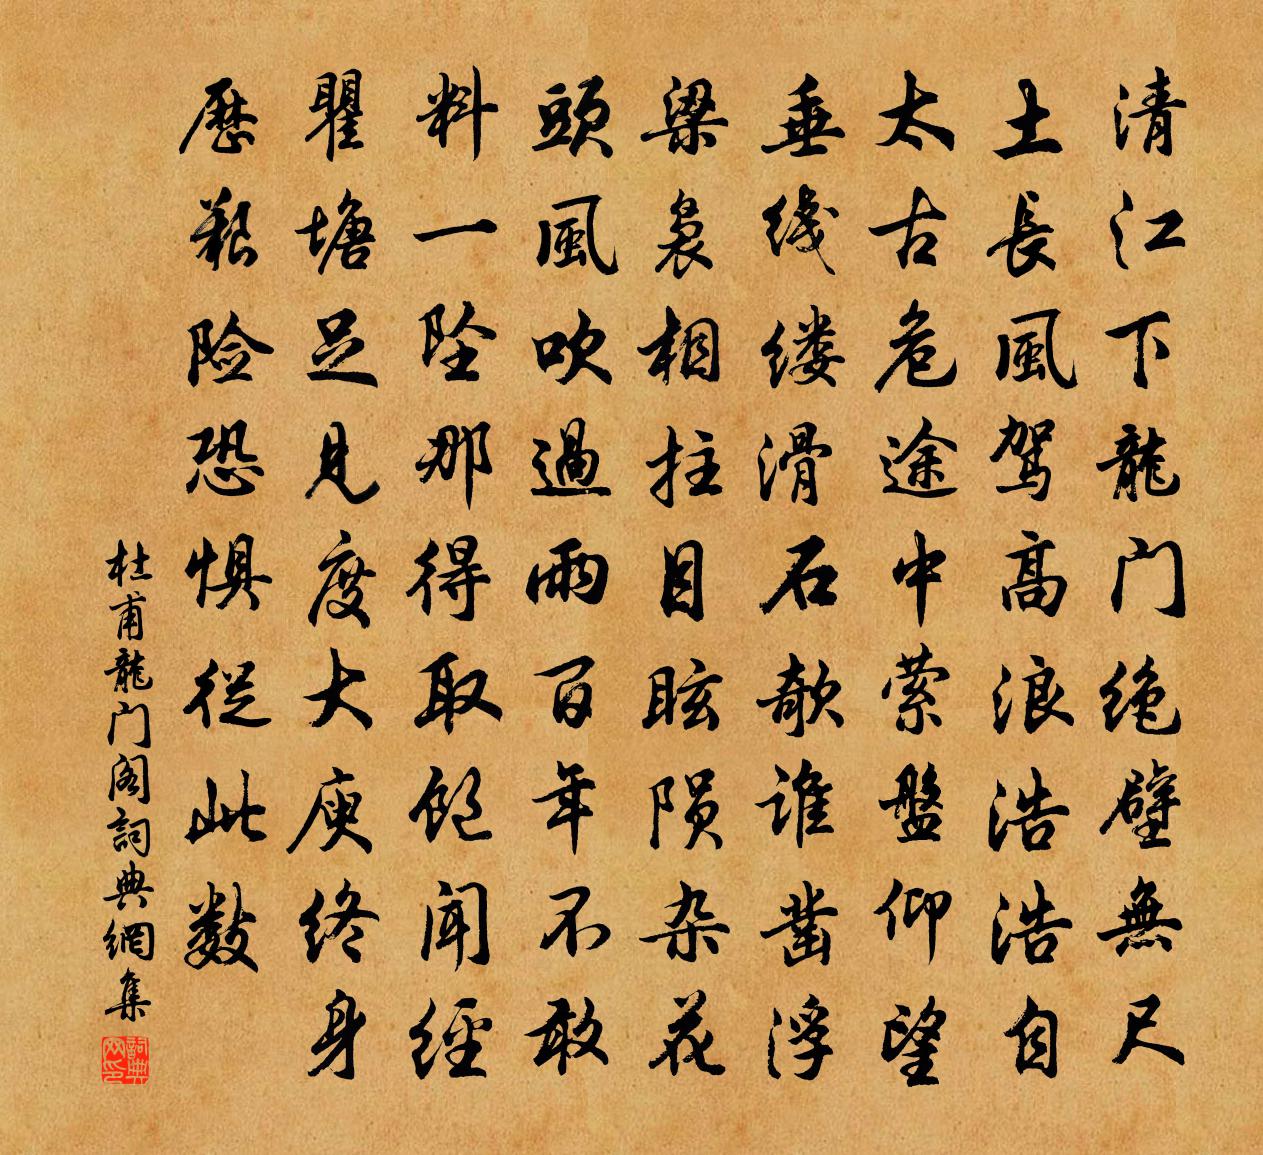 清江下龍门绝壁無尺
土長風驾高浪浩浩自
太古危途中萦盤仰望
垂线缕滑石欹谁凿浮
梁袅相拄目眩陨杂花
頭風吹過雨百年不敢
料一坠那得取饱闻經
瞿塘足見度大庾终身
歷艱险恐惧從此數
杜甫龍门阁詞典網集
詞典网印